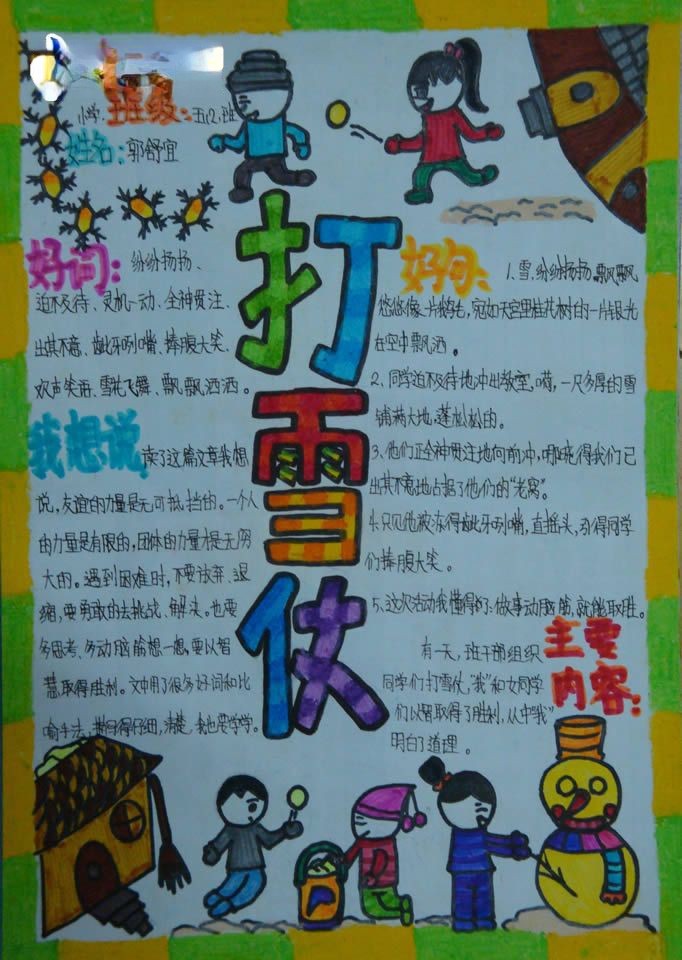 小学 班级：五(2)班
姓名：郭舒宜
打雪仗
好词：纷纷扬扬、
迫不及待、灵机一动、全神贯注、
出其不意、龇牙咧嘴、捧腹大笑、
欢声笑语、雪花飞舞、飘飘洒洒。
我想说 读了这篇文章我想
说，友谊的力量是无可抵挡的。一个人
的力量是有限的，团体的力量才是无穷
大的。遇到困难时，不要放弃、退
缩，要勇敢的去挑战、解决。也要
多思考、多动脑筋想一想，要以智
慧取得胜利。文中用了很多好词和比
喻手法，描写得仔细，清楚，我也要学学。
好句：1.雪，纷纷扬扬，飘飘
悠悠像一片鹅毛，宛如天宫里桂花树的一片银光
在空中飘洒。
2、同学迫不及待地冲出教室。嗬，一尺多厚的雪
铺满大地，蓬松松的。
3、他们正全神贯注地向前冲，哪晓得我们已
出其不意地占据了他们的“老窝”。
4.只见他被冻得龇牙咧嘴，直摇头，引得同学
们捧腹大笑。
5、这次活动我懂得了：做事动脑筋，就能取胜。
主要内容：
有一天，班干部组织
同学们打雪仗，“我”和女同学
们以智取得了胜利，从中“我”
明白了道理。